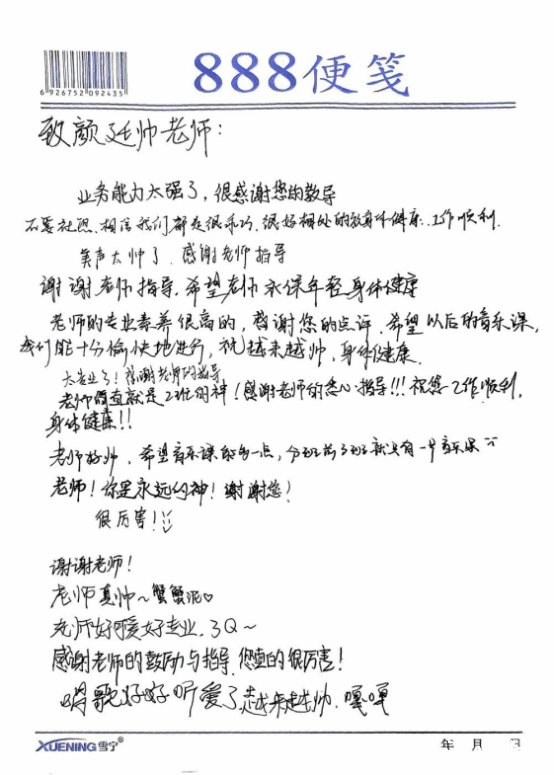 888便笺
6 926752 092435
致颜廷帅老师：
业务能力太强了，很感谢您的教导
不要社恐、相信我们都是很乖巧、很好相处的 身体健康、工作顺利.
美声太帅了、感谢老师指导
谢谢老师指导，希望老师永保年轻身体健康
老师的专业素养很高的，感谢您的点评，希望以后的音乐课，
我们能十分愉快地进行，祝越来越帅，身体健康.
太专业了！感谢老师的指导
老师简直就是2班的神！感谢老师的悉心指导!!!祝您工作顺利，
身体健康!!
老师好帅、希望音乐课能多一点，
老师！你是永远的神！谢谢您！
很厉害！
谢谢老师！
老师真帅~蟹蟹泥♡
老师好可爱好专业，3Q~
感谢老师的鼓励与指导，您真的很厉害！
唱歌好好听爱了，越来越帅，嘎嘎
XUENING雪宁®
年 月 日